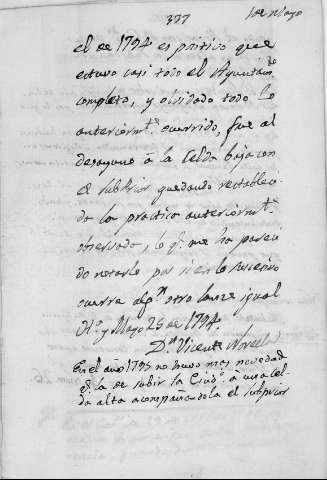 337
1 de Mayo
el de 1794 es positivo que
estuvo casi todo el Ayuntam.to
completo, y olvidado todo lo
anteriorm.te ocurrido, fue al
desayuno à la Celda baja con
el subPrior quedando restableci-
do la practica anteriorm.te
observada, lo q.e me ha pareci-
do notarlo por si en lo sucesivo
ocurre alg.n otro lance igual
y Mayo 25 de 1794.
D.n Vicente
En el año 1795 no huvo mas novedad
q.e la de subir la Ciud.d à una Cel-
da alta acompañadola el subprior